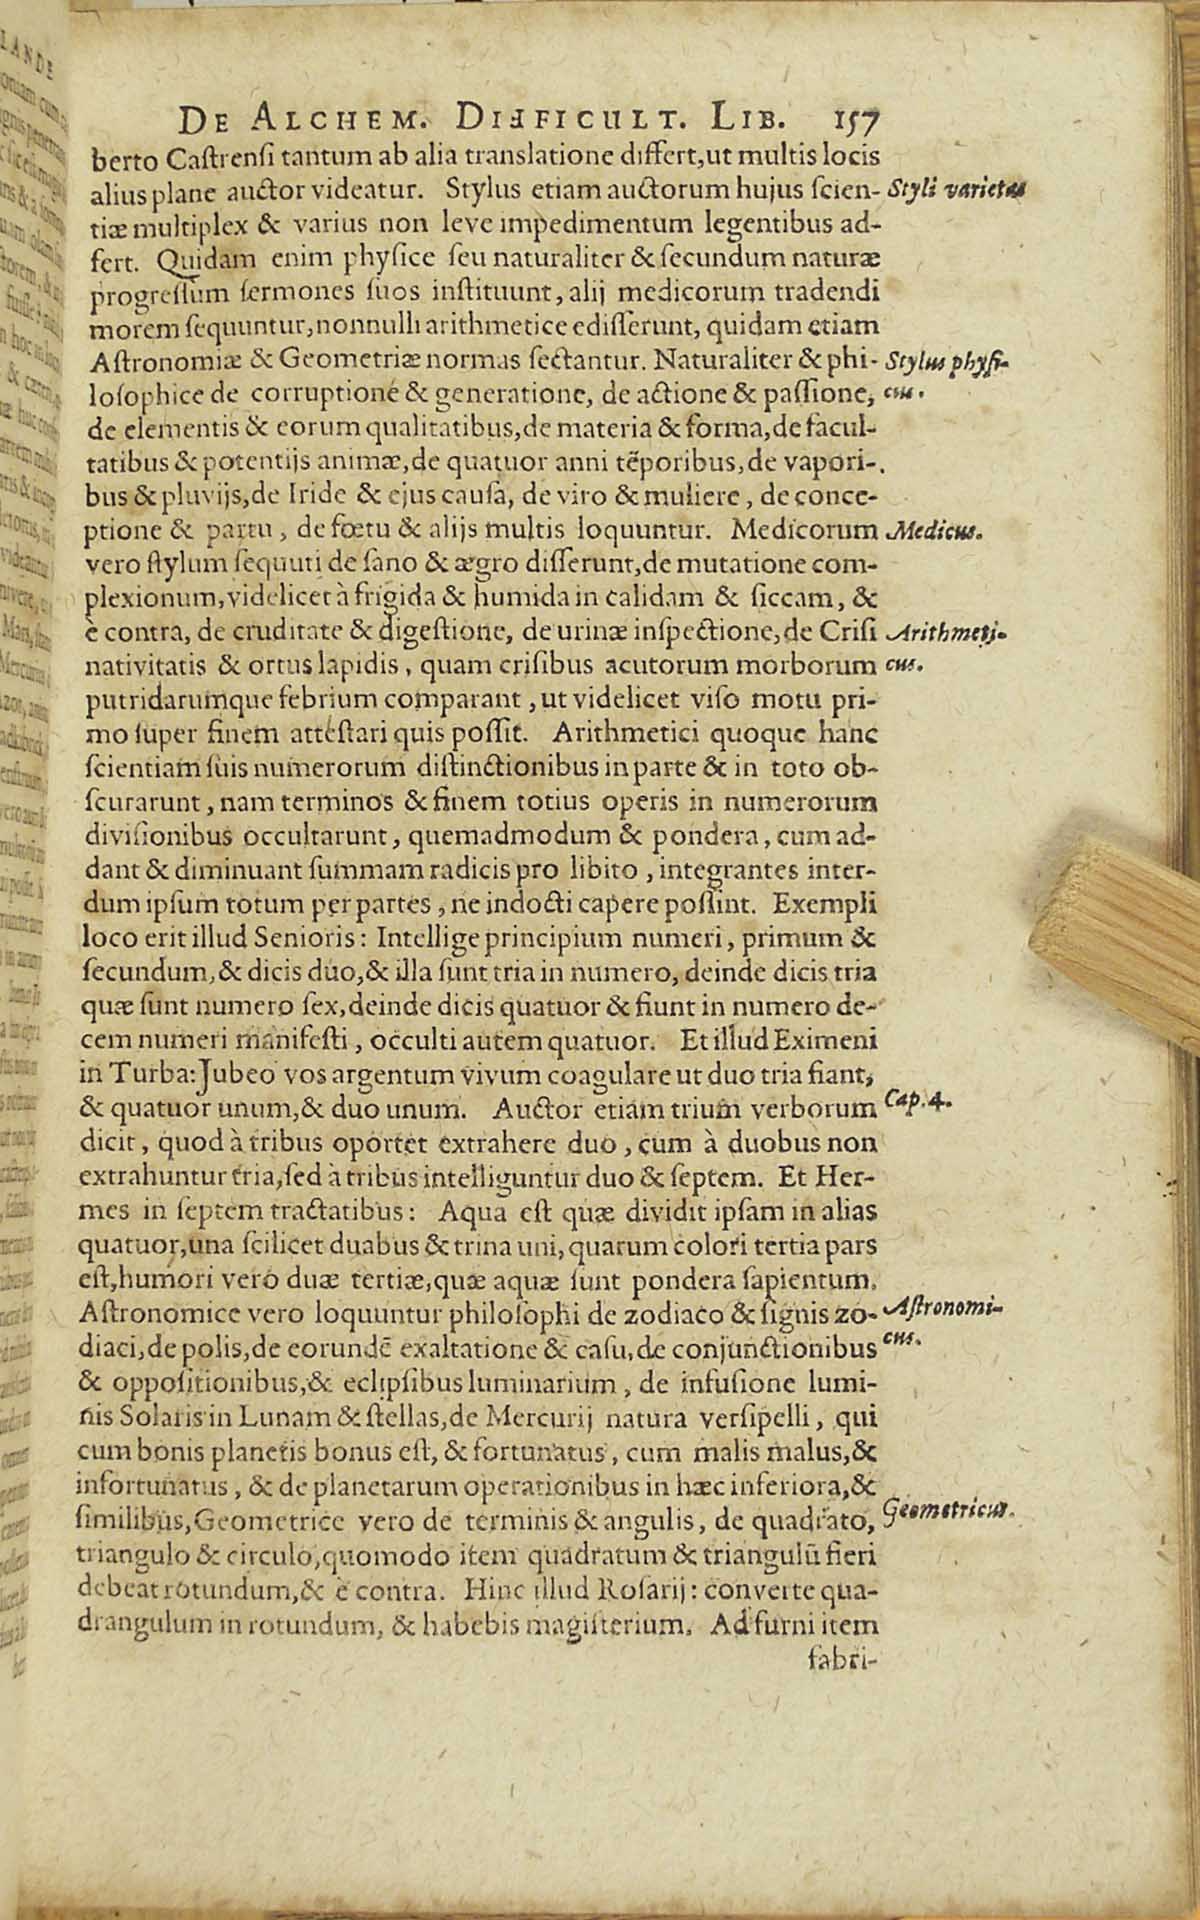 DE ALCHEM. DIFFICULT. LIB. 157
berto Castrensi tantum ab alia translatione differt, ut multis locis
alius plane auctor videatur. Stylus etiam auctorum hujus scien-
Styli varietas
tiæ multiplex & varius non leve impedimentum legentibus ad-
fert. Quidam enim physice seu naturaliter & secundum naturæ
progressum sermones suos instituunt, alij medicorum tradendi
morem sequuntur, nonnulli arithmetice edisserunt, quidam etiam
Astronomiæ & Geometriæ normas sectantur. Naturaliter & phi-
Stylus physi-
losophice de corruptione & generatione, de actione & passione,
cus.
de elementis & eorum qualitatibus, de materia & forma, de facul-
tatibus & potentijs animæ, de quatuor anni tēporibus, de vapori-
bus & pluvijs, de Iride & ejus causa, de viro & muliere, de conce-
ptione & partu, de fœtu & alijs multis loquuntur. Medicorum
Medicus.
vero stylum sequuti de sano & ægro disserunt, de mutatione com-
plexionum, videlicet à frigida & humida in calidam & siccam, &
è contra, de cruditate & digestione, de urinæ inspectione, de Crisi
Arithmeti-
nativitatis & ortus lapidis, quam crisibus acutorum morborum
cus.
putridarumque febrium comparant, ut videlicet viso motu pri-
mo super finem attestari quis possit. Arithmetici quoque hanc
scientiam suis numerorum distinctionibus in parte & in toto ob-
scurarunt, nam terminos & finem totius operis in numerorum
divisionibus occultarunt, quemadmodum & pondera, cum ad-
dant & diminuant summam radicis pro libito, integrantes inter-
dum ipsum totum per partes, ne indocti capere possint. Exempli
loco erit illud Senioris: Intellige principium numeri, primum &
secundum, & dicis duo, & illa sunt tria in numero, deinde dicis tria
quæ sunt numero sex, deinde dicis quatuor & fiunt in numero de-
cem numeri manifesti, occulti autem quatuor. Et illud Eximeni
in Turba: Jubeo vos argentum vivum coagulare ut duo tria fiant,
& quatuor unum, & duo unum. Auctor etiam trium verborum
Cap. 4.
dicit, quod à tribus oportet extrahere duo, cum à duobus non
extrahuntur tria, sed à tribus intelliguntur duo & septem. Et Her-
mes in septem tractatibus: Aqua est quæ dividit ipsam in alias
quatuor, una scilicet duabus & trina uni, quarum colori tertia pars
est, humori vero duæ tertiæ, quæ aquæ sunt pondera sapientum.
Astronomice vero loquuntur philosophi de zodiaco & signis zo-
Astronomi-
diaci, de polis, de eorundē exaltatione & casu, de conjunctionibus
cus.
& oppositionibus, & eclipsibus luminarium, de infusione lumi-
nis Solaris in Lunam & stellas, de Mercurij natura versipelli, qui
cum bonis planetis bonus est, & fortunatus, cum malis malus, &
infortunatus, & de planetarum operationibus in hæc inferiora, &
similibus, Geometrice vero de terminis & angulis, de quadrato,
Geometricus.
triangulo & circulo, quomodo item quadratum & triangulū fieri
debeat rotundum, & è contra. Hinc illud Rosarij: converte qua-
drangulum in rotundum, & habebis magisterium. Ad furni item
fabri-